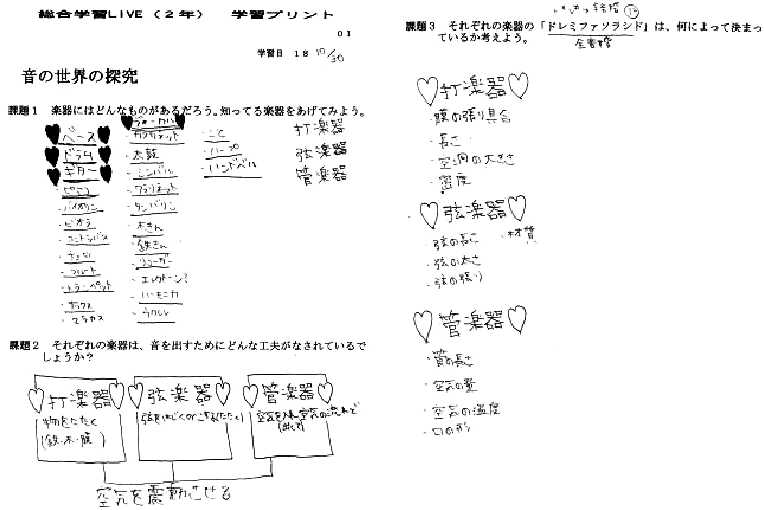 総合学習LIVE（２年） 学習プリント
０１
学習日 18 10/30
音の世界の探究
課題１ 楽器にはどんなものがあるだろう。知ってる楽器をあげてみよう。
ベース
ドラム
ギター
ピアノ
バイオリン
ビオラ
コントラバス
チェロ
フルート
トランペット
サックス
マラカス
ヴォーカル
カスタネット
太鼓
シンバル
クラリネット
タンバリン
木きん
鉄きん
リコーダー
エレクトーン?
ハーモニカ
ウクレレ
・こと
・ハープ
・ハンドベル
打楽器
弦楽器
管楽器
課題２ それぞれの楽器は、音を出すためにどんな工夫がなされているで
しょうか？
打楽器
物をたたく
(鉄・木・膜)
弦楽器
弦をはじくorこする(たたく)
管楽器
空気を震動させる
課題３ それぞれの楽器の「ドレミファソラシド」は、何によって決まっ
ているか考えよう。
全音階
打楽器
・膜の張り具合
・長さ
・空洞の大きさ
・密度
弦楽器
・弦の長さ ・材質
・弦の太さ
・弦の張り
管楽器
・管の長さ
・空気の量
・空気の温度
・口の形